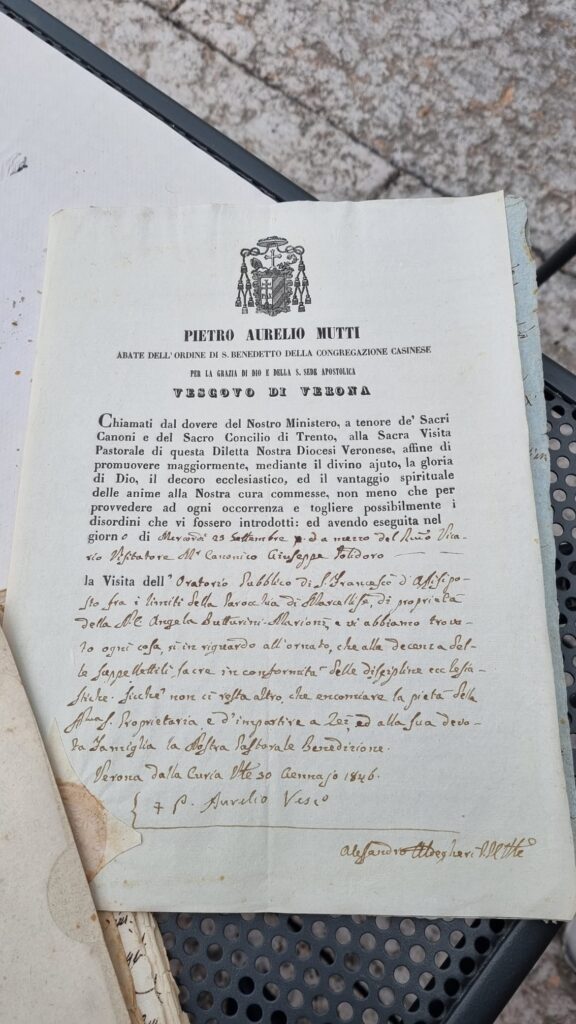 PIETRO AURELIO MUTTI
ABATE DELL'ORDINE DI S. BENEDETTO DELLA CONGREGAZIONE CASINESE
PER LA GRAZIA DI DIO E DELLA S. SEDE APOSTOLICA
VESCOVO DI VERONA
Chiamati dal dovere del Nostro Ministero, a tenore de' Sacri
Canoni e del Sacro Concilio di Trento, alla Sacra Visita
Pastorale di questa Diletta Nostra Diocesi Veronese, affine di
promuovere maggiormente, mediante il divino ajuto, la gloria
di Dio, il decoro ecclesiastico, ed il vantaggio spirituale
delle anime alla Nostra cura commesse, non meno che per
provvedere ad ogni occorrenza e togliere possibilmente i
disordini che vi fossero introdotti: ed avendo eseguita nel
giorno di Mercordì 23 Settembre p.d a mezzo del Vica-
rio Visitatore Canonico Giuseppe Polidoro
la Visita dell' Oratorio Pubblico di S. Francesco d'Assisi po-
sto fra i limiti della Parochia di Marcellise, di proprietà
della Angela Butturini-Marioni e vi abbiamo trova-
to ogni cosa, sì in riguardo all'ornato, che alla decenza del-
le suppellettili sacre in conformità delle discipline ecclesia-
stiche. Sicché non ci resta altro, che encomiare la pietà della
S. Proprietaria e d'impartire a Lei, ed alla sua devo-
ta Famiglia la Nostra Pastorale Benedizione.
Verona dalla Curia 30 Gennajo 1846.
+ P. Aurelio Vesc°
Alessandro Aldegheri